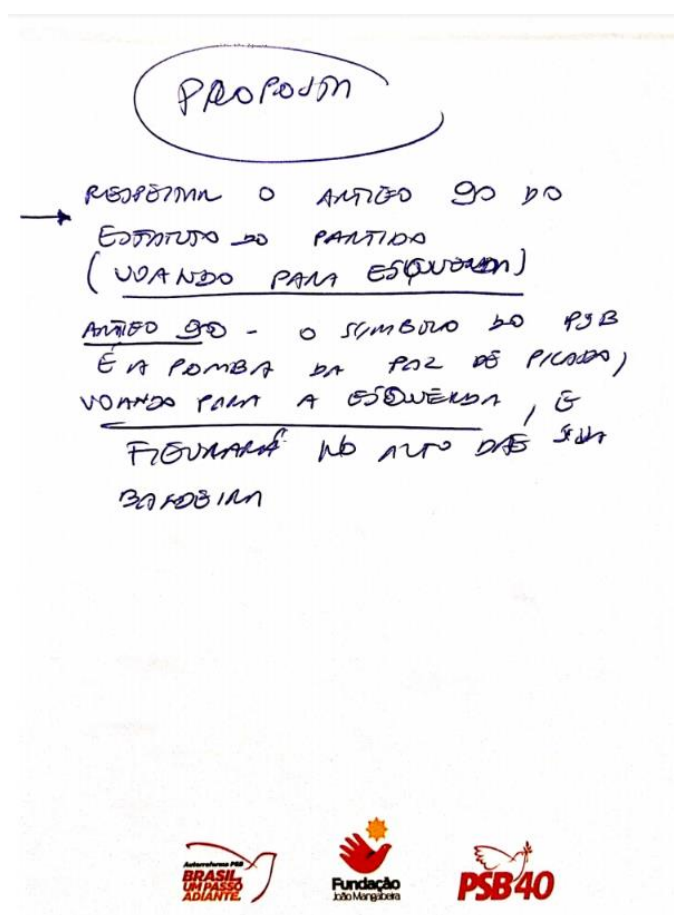 PROPOSTA
RESPEITAR O ARTIGO 90 DO
ESTATUTO DO PARTIDO
(VOANDO PARA ESQUERDA)
ARTIGO 90 - O SÍMBOLO DO PSB
É A POMBA DA PAZ DE PICASSO,
VOANDO PARA A ESQUERDA, E
FIGURARÁ NO ALTO DAS SUA
BANDEIRA
Autorreforma PSB
BRASIL
UM PASSO
ADIANTE.
Fundação
João Mangabeira
PSB 40